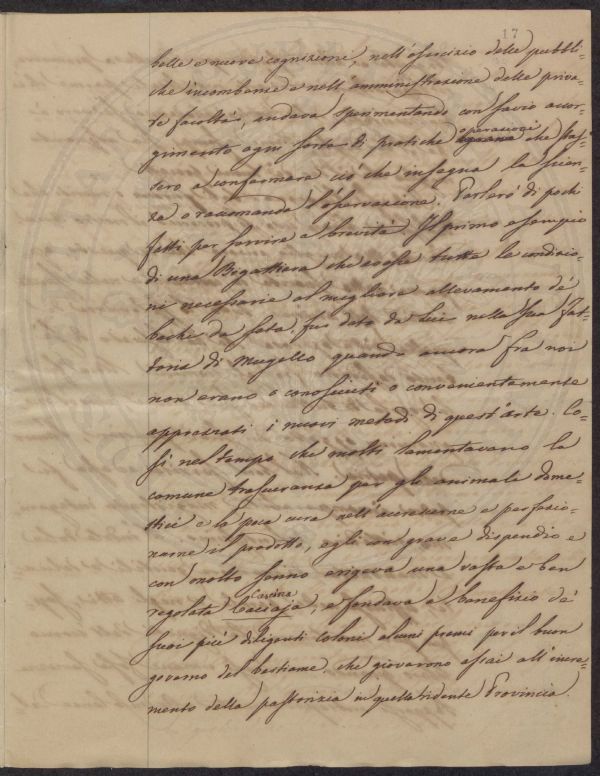 17
belle e nuove cognizioni, nell'esercizio delle pubbli-
che incombenze e nell'amministrazione delle priva-
te facoltà, andava sperimentando con savio accor-
gimento ogni sorta di pratiche operazioni che fos-
sero a confermare ciò che insegna la scien-
za o raccomanda l'osservazione. Parlerò di pochi
fatti per servire a brevità. Il primo esempio
di una Bigattiera che avesse tutte le condizio-
ni necessarie al migliore allevamento de'
bachi da seta, fu dato da lui nella sua Fat-
toria di Mugello quando ancora fra noi
non erano o conosciuti o convenientemente
apprezzati i nuovi metodi di quest'arte. Co-
sì nel tempo che molti lamentavano la
comune trascuranza per gli animali dome-
stici e la poca cura nell'accrescerne e perfezio-
narne il prodotto, egli con grave dispendio e
con molto senno erigeva una vasta e ben
regolata Cascina Caciaja, e fondava a benefizio de'
suoi più diligenti coloni alcuni premi per il buon
governo del bestiame, che giovarono assai all'incre-
mento della pastorizia in quella ridente Provincia.